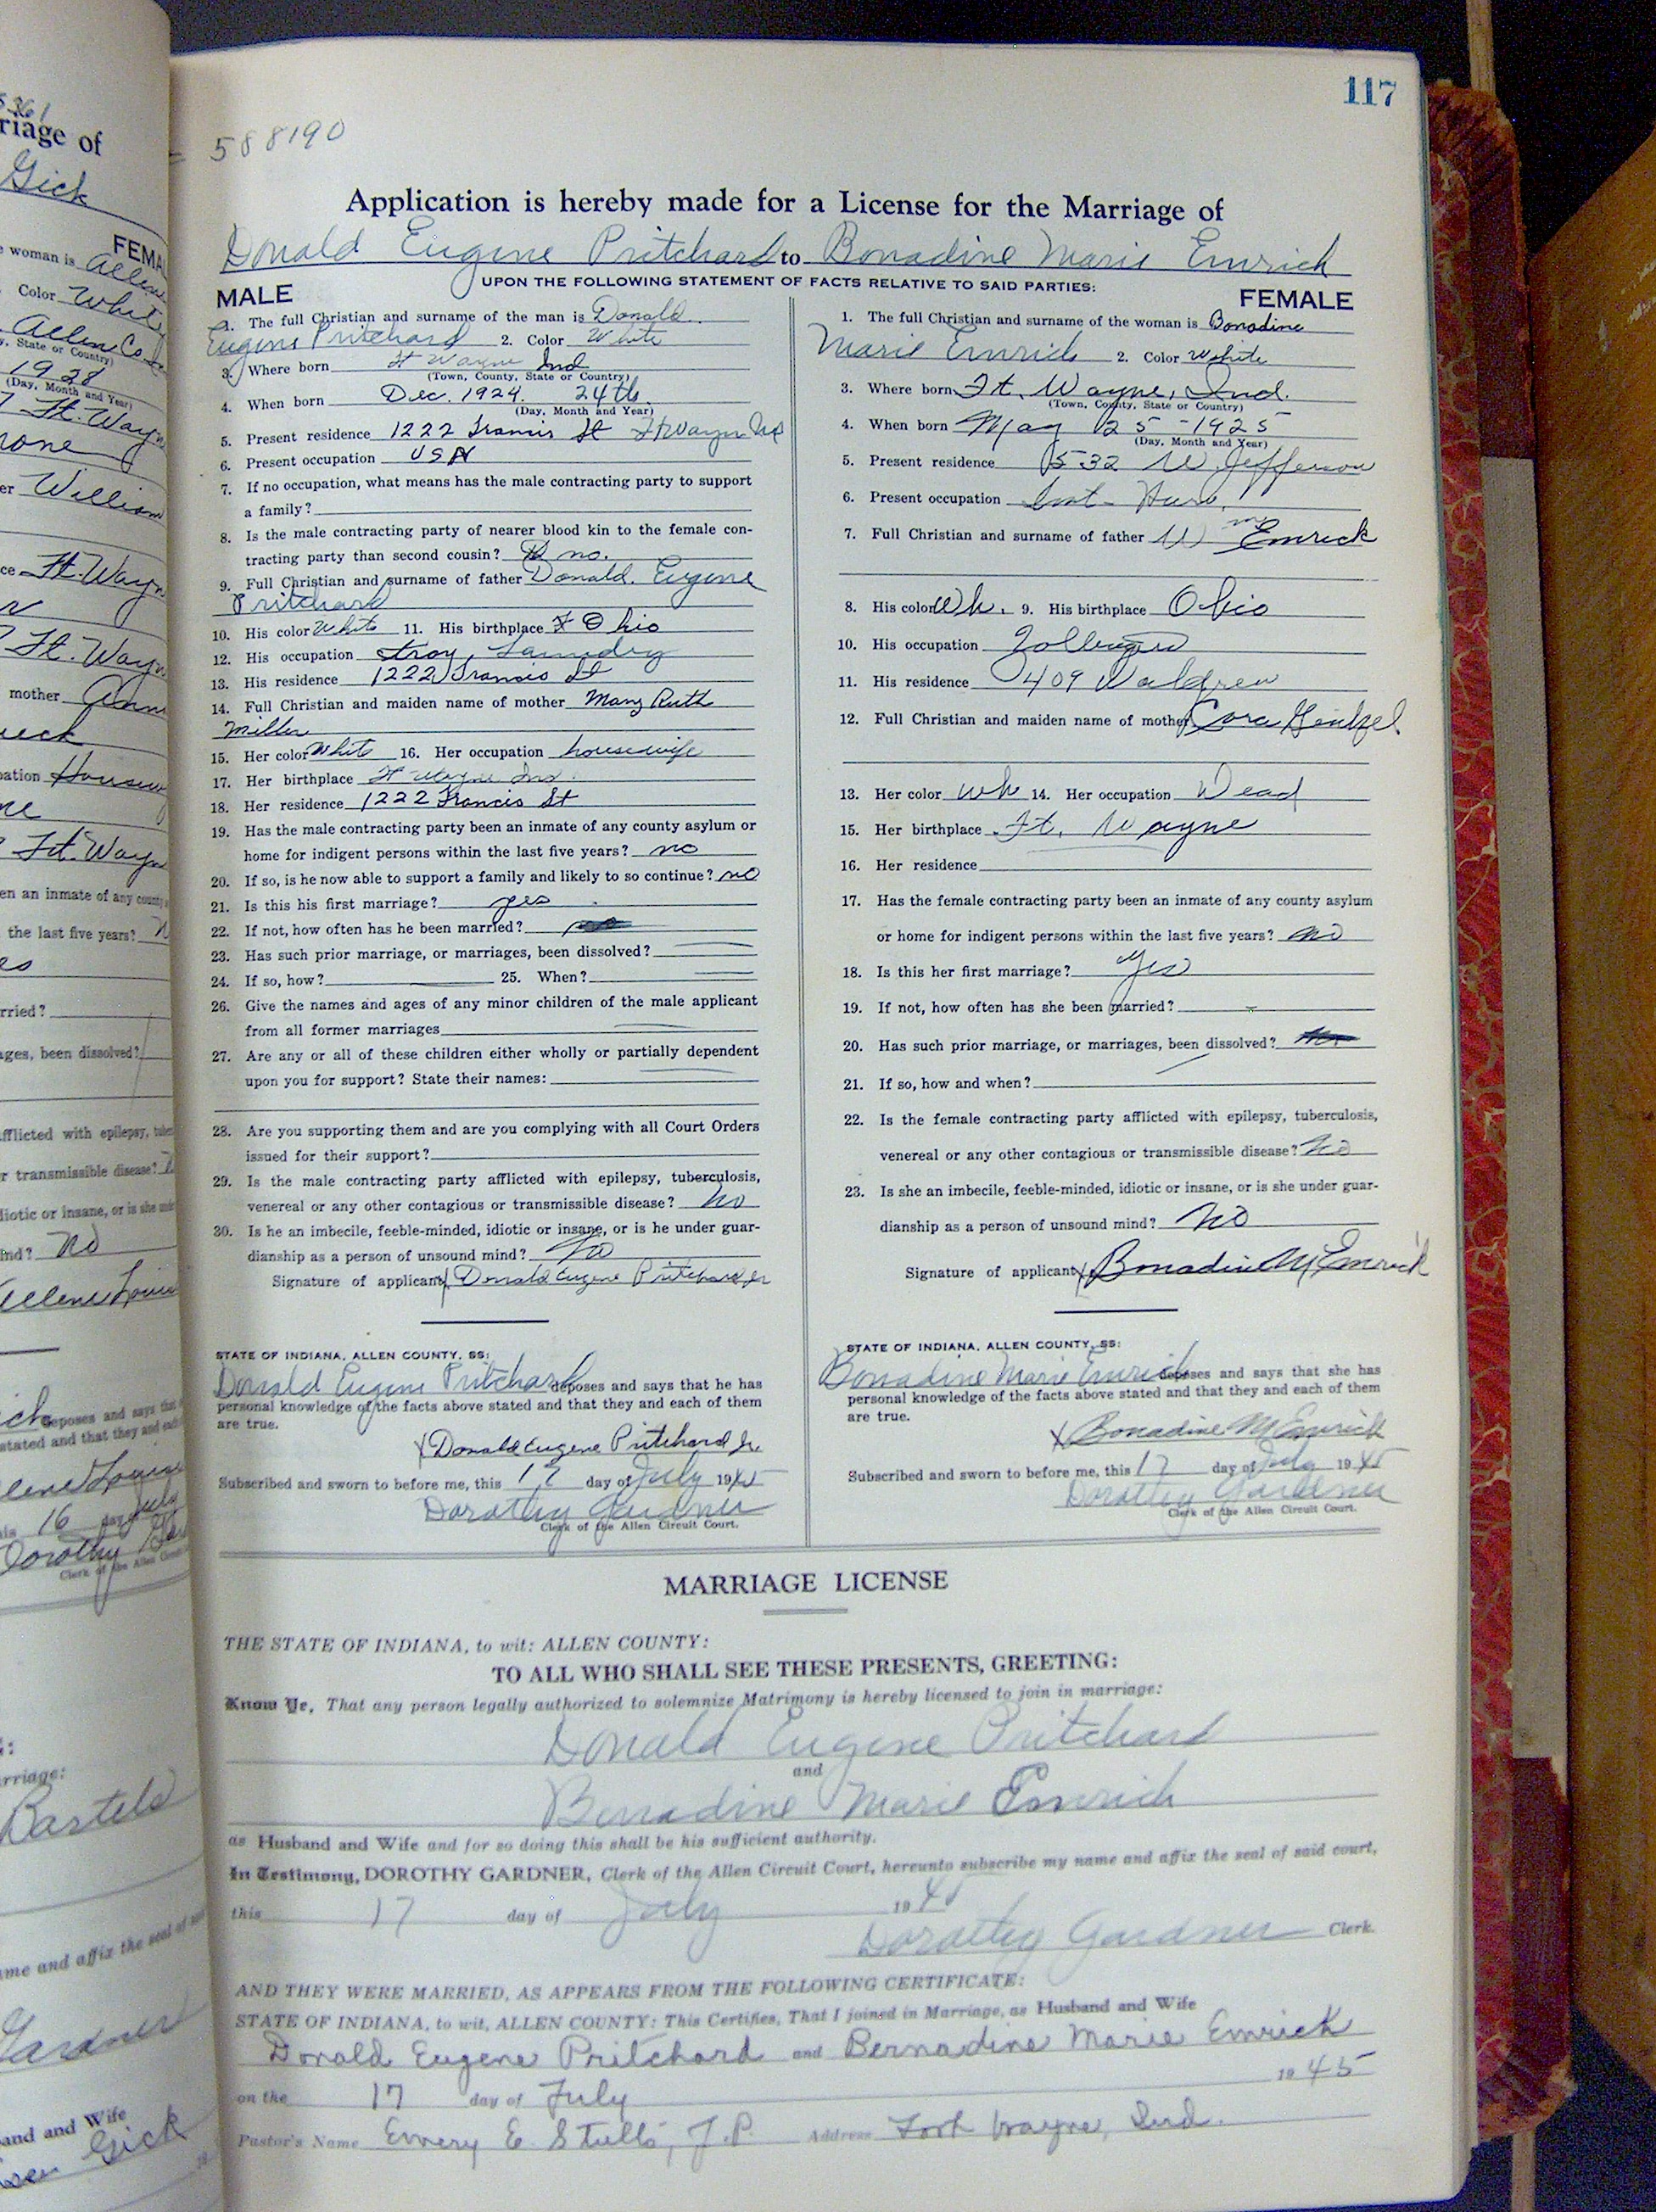 117
588190
Application is hereby made for a License for the Marriage of
Donald Eugene Pritchard to Bonadine Marie Emrick
UPON THE FOLLOWING STATEMENT OF FACTS RELATIVE TO SAID PARTIES:
MALE
1. The full Christian and surname of the man is Donald
Eugene Pritchard 2. Color White
3. Where born Ft Wayne Ind
(Town, County, State or Country)
4. When born Dec. 1924. 24th
(Day, Month and Year)
5. Present residence 1222 Francis St Ft Wayne Ind
6. Present occupation USN
7. If no occupation, what means has the male contracting party to support
a family?
8. Is the male contracting party of nearer blood kin to the female con-
tracting party than second cousin? no.
9. Full Christian and surname of father Donald. Eugene
Pritchard
10. His color White 11. His birthplace Ohio
12. His occupation Troy Laundry
13. His residence 1222 Francis St
14. Full Christian and maiden name of mother Mary Ruth
Miller
15. Her color White 16. Her occupation housewife
17. Her birthplace Ft Wayne Ind.
18. Her residence 1222 Francis St
19. Has the male contracting party been an inmate of any county asylum or
home for indigent persons within the last five years? no
20. If so, is he now able to support a family and likely to so continue? no
21. Is this his first marriage? yes
22. If not, how often has he been married?
23. Has such prior marriage, or marriages, been dissolved?
24. If so, how? 25. When?
26. Give the names and ages of any minor children of the male applicant
from all former marriages
27. Are any or all of these children either wholly or partially dependent
upon you for support? State their names:
28. Are you supporting them and are you complying with all Court Orders
issued for their support?
29. Is the male contracting party afflicted with epilepsy, tuberculosis,
venereal or any other contagious or transmissible disease? No
30. Is he an imbecile, feeble-minded, idiotic or insane, or is he under guar-
dianship as a person of unsound mind? No
Signature of applicant x Donald Eugene Pritchard Jr
STATE OF INDIANA, ALLEN COUNTY, SS:
Donald Eugene Pritchard deposes and says that he has
personal knowledge of the facts above stated and that they and each of them
are true.
x Donald Eugene Pritchard Jr.
Subscribed and sworn to before me, this 17 day of July 1945
Dorothy Gardner
Clerk of the Allen Circuit Court.
FEMALE
1. The full Christian and surname of the woman is Bonadine
Marie Emrick 2. Color White
3. Where born Ft. Wayne, Ind.
(Town, County, State or Country)
4. When born May 25 - 1925
(Day, Month and Year)
5. Present residence 1532 W. Jefferson
6. Present occupation Int - Harv.
7. Full Christian and surname of father Wm Emrick
8. His color Wh. 9. His birthplace Ohio
10. His occupation
11. His residence 1409 Waldren
12. Full Christian and maiden name of mother Cora
13. Her color Wh 14. Her occupation Dead
15. Her birthplace Ft. Wayne
16. Her residence
17. Has the female contracting party been an inmate of any county asylum
or home for indigent persons within the last five years? no
18. Is this her first marriage? Yes
19. If not, how often has she been married?
20. Has such prior marriage, or marriages, been dissolved?
21. If so, how and when?
22. Is the female contracting party afflicted with epilepsy, tuberculosis,
venereal or any other contagious or transmissible disease? No
23. Is she an imbecile, feeble-minded, idiotic or insane, or is she under guar-
dianship as a person of unsound mind? No
Signature of applicant x Bonadine M Emrick
STATE OF INDIANA, ALLEN COUNTY, SS:
Bonadine Marie Emrick deposes and says that she has
personal knowledge of the facts above stated and that they and each of them
are true.
x Bonadine M Emrick
Subscribed and sworn to before me, this 17 day of July 1945
Dorothy Gardner
Clerk of the Allen Circuit Court.
MARRIAGE LICENSE
THE STATE OF INDIANA, to wit: ALLEN COUNTY:
TO ALL WHO SHALL SEE THESE PRESENTS, GREETING:
Know Ye, That any person legally authorized to solemnize Matrimony is hereby licensed to join in marriage:
Donald Eugene Pritchard
and
Bonadine Marie Emrick
as Husband and Wife and for so doing this shall be his sufficient authority.
In Testimony, DOROTHY GARDNER, Clerk of the Allen Circuit Court, hereunto subscribe my name and affix the seal of said court,
this 17 day of July 1945
Dorothy Gardner Clerk.
AND THEY WERE MARRIED, AS APPEARS FROM THE FOLLOWING CERTIFICATE:
STATE OF INDIANA, to wit, ALLEN COUNTY: This Certifies, That I joined in Marriage, as Husband and Wife
Donald Eugene Pritchard and Bernadine Marie Emrick
on the 17 day of July 1945
Pastor's Name Emery E. Stults, J.P. Address Fort Wayne, Ind.